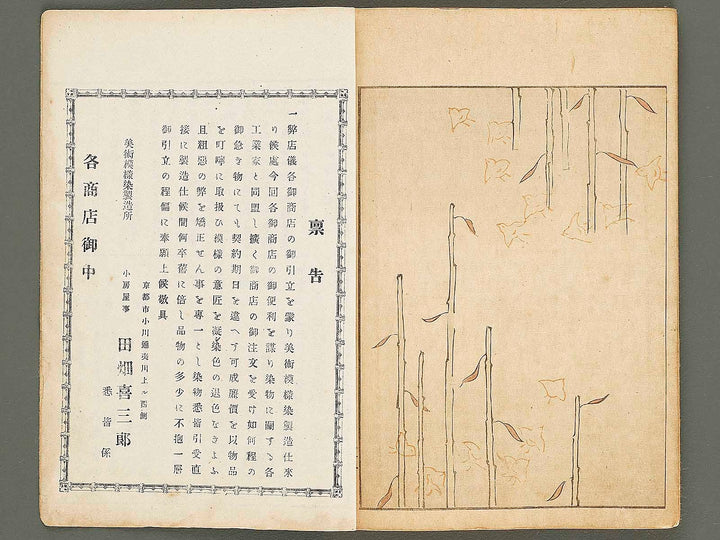 稟告
一弊店儀各御商店の御引立を蒙り美術模様染製造仕来
り候處今回各御商店の御便利を謀り染物に關する各
工業家と同盟し擴く御商店の御注文を受け如何程の
御急き物にても契約期日を違へす可成廉價を以物品
を叮嚀に取扱ひ模様の意匠を凝染色の退色をきよふ
且粗惡の弊を矯正せん事を專一とし染物悉皆引受直
接に製造仕候間何卒舊に倍し品物の多少に不抱一層
御引立の程偏に奉願上候敬具
京都市小川通夷川上ル西側
美術模様染製造所
小房屋事
田畑喜三郎
悉皆係
各商店御中